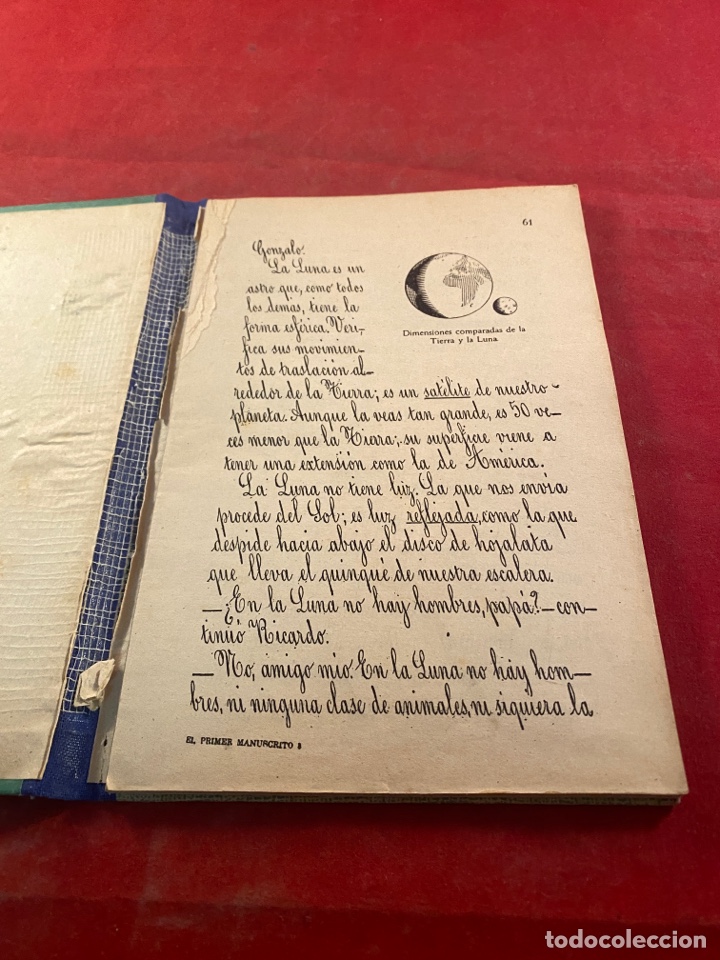 61
Gonzalo.
La Luna es un
astro que, como todos
los demas, tiene la
forma esférica. Veri-
fica sus movimien-
tos de traslación al-
rededor de la Tierra; es un satélite de nuestro
planeta. Aunque la veas tan grande, es 50 ve-
ces menor que la Tierra; su superficie viene a
tener una extensión como la de América.
Dimensiones comparadas de la
Tierra y la Luna
La Luna no tiene luz. La que nos envía
procede del Sol; es luz reflejada, como la que
despide hacia abajo el disco de hojalata
que lleva el quinqué de nuestra escalera.
—¿En la Luna no hay hombres, papá?—con-
tinuó Ricardo.
—No, amigo mio. En la Luna no háy hom-
bres, ni ninguna clase de animales, ni siquiera la
EL PRIMER MANUSCRITO 3
todocoleccion